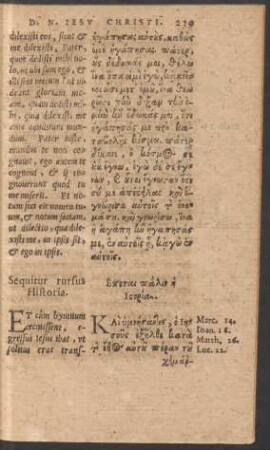 D. N. IESV CHRISTI. 239
dilexisti eos, sicut &
me dilexisti, Pater,
quos dedisti mihi vo-
lo, ut ubi sum ego, &
illi sint mecum, ut vi-
deant gloriam me-
am, quam dedisti mi-
hi, quia dilexisti me
ante constitutionem mundi
Pater iuste,
mundus te non co-
gnovit, ego autem te
cognovi, & ij
cognoverunt quod tu
me misisti. Et no-
tum feci eis nomen tu-
um, & notum faciam,
ut dilectio, qua dile-
xisti me, in ipsis sit,
& ego in ipsis.
Sequitur rursus
Historia.
ET cùm hymnum
cecinissent, e-
gressus Iesus ibat, ut
solitus erat trans-
ἠγάπησας αὐτοὺς, καθὼς
ἐμὲ ἠγάπησας. πάτερ,
οὓς δέδωκάς μοι, θέλω
ἵνα ὅπου εἰμὶ ἐγὼ, κἀκεῖνοι
ὦσι μετ' ἐμοῦ, ἵνα θεω-
ρῶσι τὴν δόξαν τὴν ἐ-
μὴν ἣν ἔδωκάς μοι, ὅτι
ἠγάπησάς με πρὸ κα-
ταβολῆς κόσμου. πάτερ
δίκαιε, ὁ κόσμος σε
οὐκ ἔγνω, ἐγὼ δέ σε ἔγνων,
καὶ οὗτοι ἔγνωσαν ὅτι
σύ με ἀπέστειλας καὶ
ἐγνώρισα αὐτοῖς τὸ ὄνο-
μά σου, καὶ γνωρίσω, ἵνα
ἡ ἀγάπη ἣν ἠγάπησάς
με, ἐν αὐτοῖς ᾖ, κἀγὼ ἐν
αὐτοῖς.
Ἕπεται πάλιν ἡ
Ἱστορία.
ΚΑὶ ὑμνήσαντες, ὁ Ἰη-
σοῦς ἐξῆλθε κατὰ
τὸ ἔθος αὐτοῦ πέραν τοῦ
χειμάῤ-
Marc. 14.
Ioan. 18.
Matth. 26.
Luc. 22.